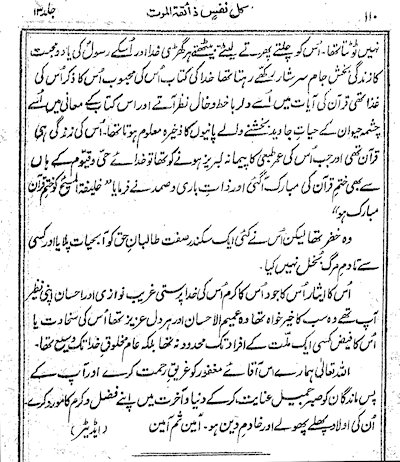 ۱۱۰ کل نفس ذائقة الموت جلد ۱۳
نہیں ٹوٹا تھا۔ اُس کو چلتے پھرتے لیٹتے بیٹھتے ہر گھڑی خدا اور اُسکے رسول کی یاد و محبت
کا زندگی بخش جام سرشار رکھے رہتا تھا خدا کی کتاب اس کی محبوب اُس کا ذکر اُس کی
غذا تھی قرآن کی آیات میں اُسے دلربا خط و خال نظر آتے اور اس کتاب کے معانی میں اُسے
چشمہ حیوان کے حیات جاوید بخشنے والے پانیوں کا ذخیرہ معلوم ہوتا تھا۔ اُس کی زندگی ہی
قرآن تھی اور جب اُس کی عمر طبعی کا پیمانہ لبریز ہونے کو تھا تو خدائے حی و قیوم کے ہاں
سے بھی ختم قرآن کی مبارک آگئی اور ذات باری و صمد نے فرمایا "خلیفة المسیح کو ختم قرآن
مبارک ہو"
وہ خضر تھا لیکن اُس نے کئی ایک سکندر صفت طالبان حق کو آب حیات پلایا اور کسی
سے تادم مرگ بخل نہیں کیا۔
اُس کا ایثار اُس کا جود اُس کا کرم اُس کی خدا پرستی غریب نوازی اور احسان اپنی نظیر
آپ تھے وہ سب کا خیر خواہ تھا وہ عمیم الاحسان اور ہر دل عزیز تھا اُس کی سخاوت یا
اُس کا فیض کسی ایک ملت کے افراد تک محدود نہ تھا بلکہ عام مخلوق خدا تک وسیع تھا۔
اللہ تعالیٰ ہمارے اس آقائے مغفور کو غریق رحمت کرے اور آپ کے
پس ماندگان کو صبر جمیل عنایت کر کے دنیا و آخرت میں اپنے فضل و کرم کا مورد کرے۔
اُن کی اولاد پھلے پھولے اور خادم دین ہو۔ آمین ثم آمین (ایڈیٹر)